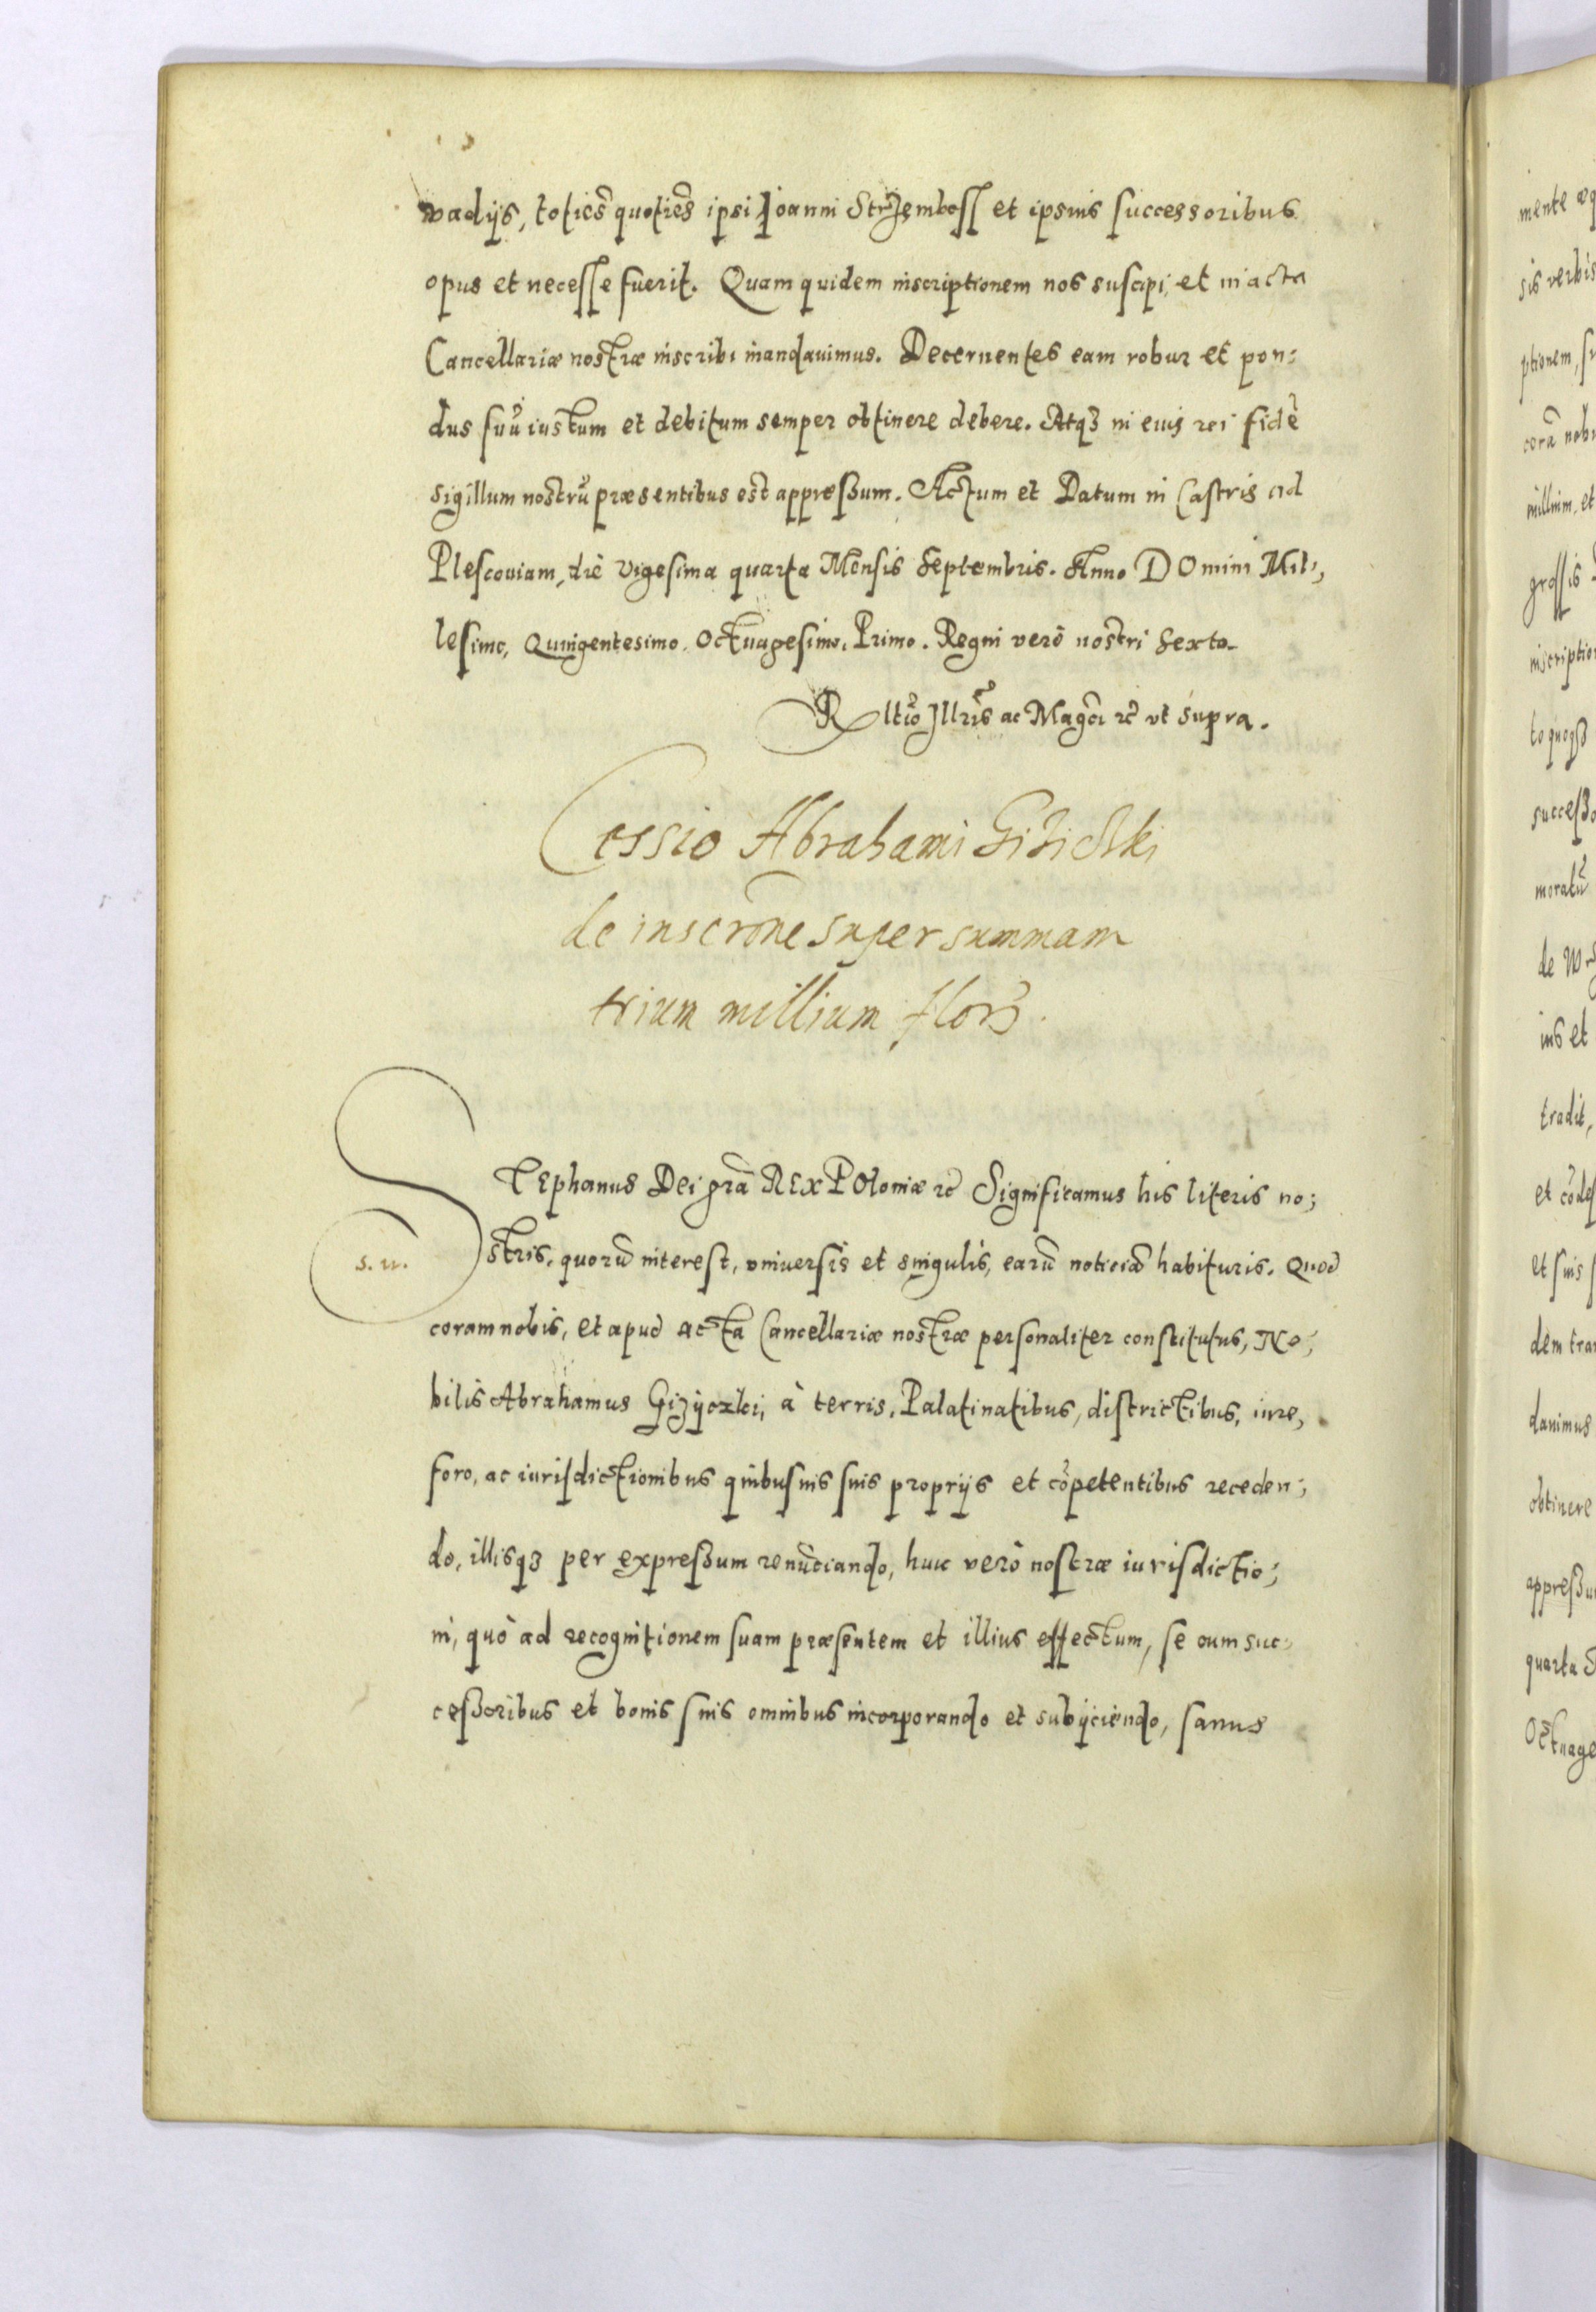 vadijs, toties quoties ipsi Joanni Strzembosſ et ipsius ſuccessoribus
opus et neceſſe fuerit. Quam quidem inscriptionem nos suſcipi, et in acta
Cancellariæ nostræ inscribi mandauimus. Decernentes eam robur et pon:
dus ſuũ iustum et debitum semper obtinere debere. Atqꝫ in eius rei fidẽ
sigillum nostrũ præsentibus est appreßum. Actum et Datum in Castris ad
Pleſcouiam, die Vigesima quarta Mensis Septembris. Anno DOmini Mil:,
lesimo, Quingentesimo, Octuagesimo, Primo. Regni verò nostri Sexto.
Rltio Jllris ac Magci ꝛc vt supra.
Cessio Abrahami Giziczki
de inscrone super summam
trium millium flor.
STEphanus Dei grã REx POloniæ ꝛc Significamus his literis no;
stris, quorũ interest, vniuersis et singulis, earũ noticiã habituris. Quod
s. n.
coram nobis, et apud acta Cancellariæ nostræ personaliter constitutus, No;
bilis Abrahamus Gizÿczki, à terris, Palatinatibus, districtibus, iure,
foro, ac iurisdictionibus quibusuis suis proprijs et cõpetentibus receden;
do, illisqꝫ per expreßum renũciando, huic verò nostræ iurisdictio;
ni, quò ad recognitionem suam præsentem et illius effectum, se cum suc:
ceßoribus et bonis suis omnibus incorporando et subijciendo, sanus
mente æq
sis verbis
ptionem, ſu
corã nobi
millium, et
groſſis
inscription
to quoqꝫ
succeßo
moratũ
de
ius et
tradit,
et cõde
et suis ſ
dem tra
damus
obtinere
appreßu
quarta
Octuage